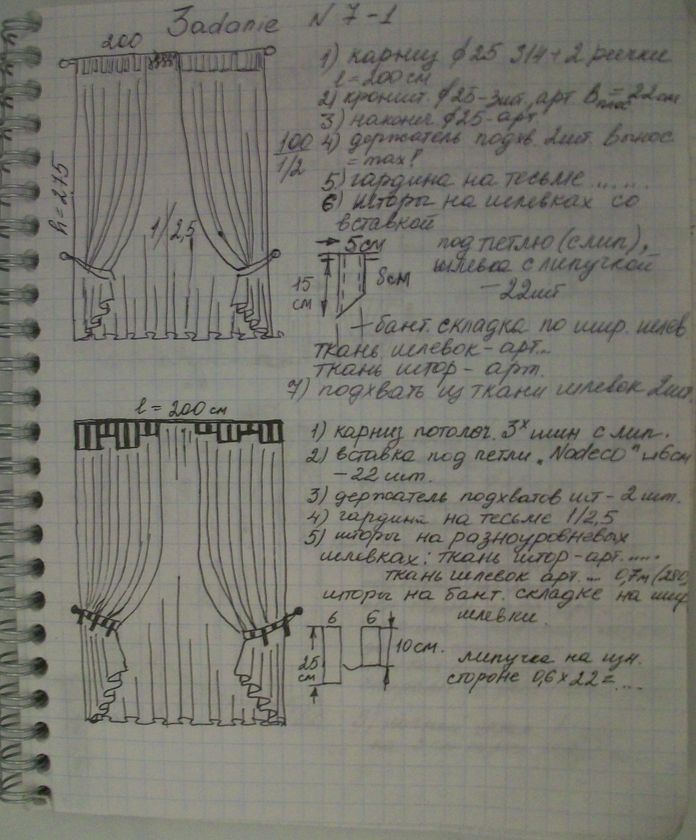 Задание N 7-1
200
1) карниз ф25 3/4+2 речки
l = 200 см
2) кроншт. ф25-3шт, арт. Вынос = 22 см
3) наконеч ф25-арт.
100
1/2
4) держатель подхв. 2шт. Вынос
= max!
5) гардина на тесьме ......
6) шторы на шлевках со
вставкой
h = 275
1/2,5
5 см
15
см
8см
под петлю (слип),
шлевка с липучкой
- 22шт
- бант. складка по шир. шлев
ткань шлевок - арт...
ткань штор - арт.
7) подхваты из ткани шлевок 2шт.
l = 200 см
1) карниз потолоч. 3х шин с лип.
2) вставка под петли "Nadeco" ш6см
- 22 шт.
3) держатель подхватов шт - 2 шт.
4) гардина на тесьме 1/2,5
5) шторы на разноуровневых
шлевках: ткань штор-арт. .....
ткань шлевок арт. ... 0,7м (280)
шторы на бант. складке на шир
шлевки.
6 6
25
см
10см.
липучка на изн.
стороне 0,6 x 22 = ....